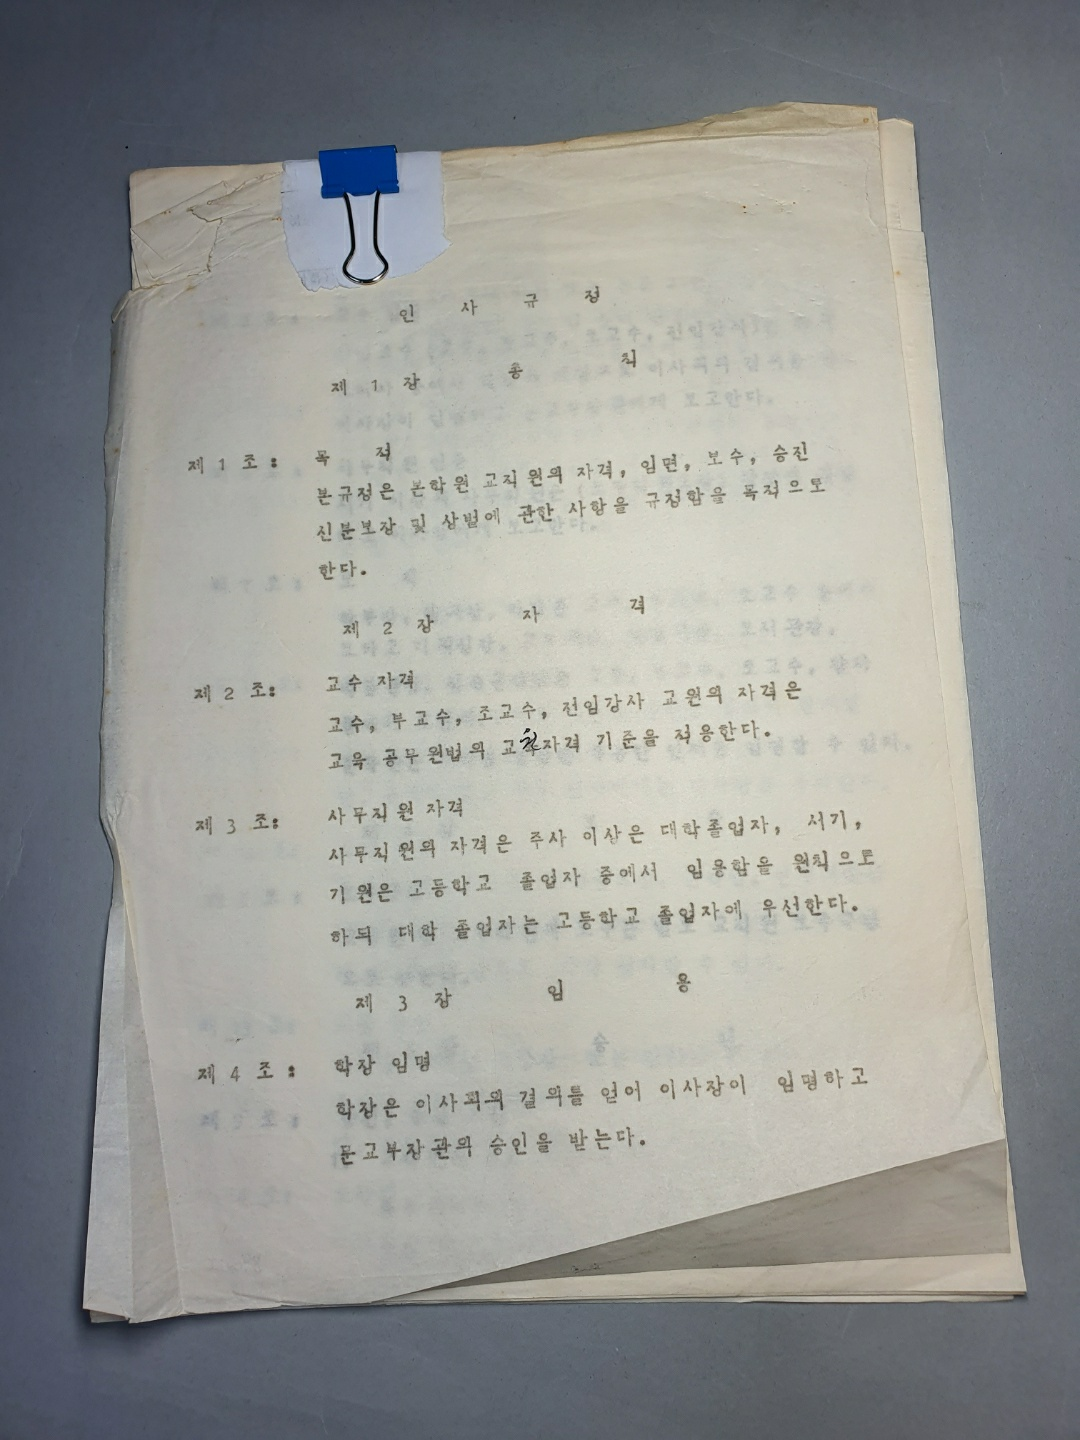 인 사 규 정
제 1 장 총 칙
제 1 조 : 목 적
본규정은 본학원 교직원의 자격, 임면, 보수, 승진
신분보장 및 상벌에 관한 사항을 규정함을 목적으로
한다.
제 2 장 자 격
제 2 조: 교수 자격
교수, 부교수, 조교수, 전임강사 교원의 자격은
교육 공무원법의 교원자격 기준을 적용한다.
제 3 조: 사무직원 자격
사무직원의 자격은 주사 이상은 대학졸업자, 서기,
기원은 고등학교 졸업자 중에서 임용함을 원칙으로
하되 대학 졸업자는 고등학교 졸업자에 우선한다.
제 3 장 임 용
제 4 조 : 학장 임명
학장은 이사회의 결의를 얻어 이사장이 임명하고
문교부장관의 승인을 받는다.